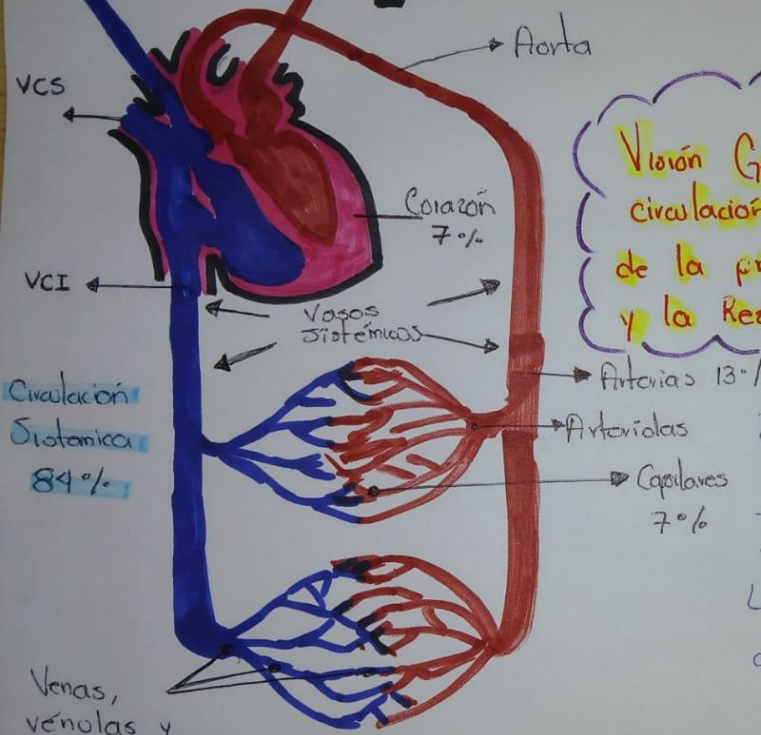 Aorta
VCS
Visión G
circulación
de la p
y la Re
Corazón
7%
VCI
Vasos
Sistémicos
Arterias 13%
Circulación
Sistemica
84%
Arteriolas
Capilares
7%
Venas,
vénulas y